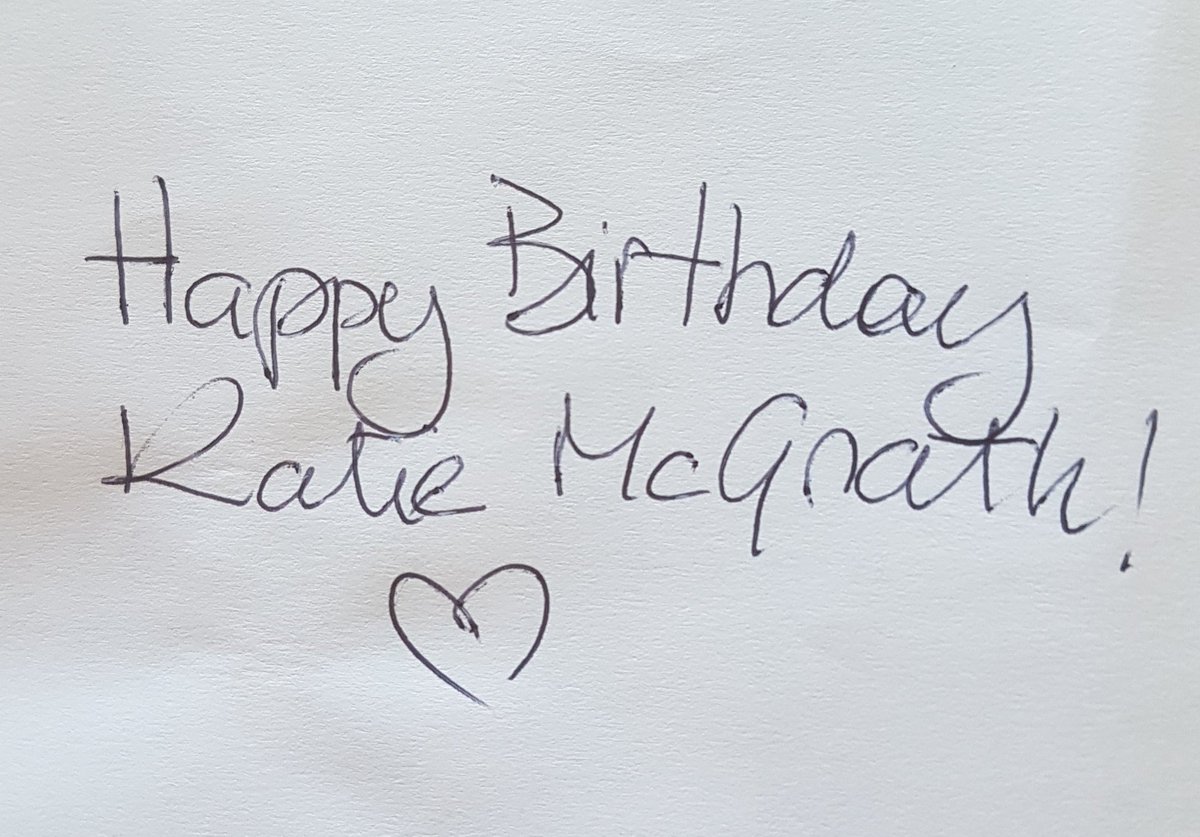 Happy Birthday
Katie McGrath!